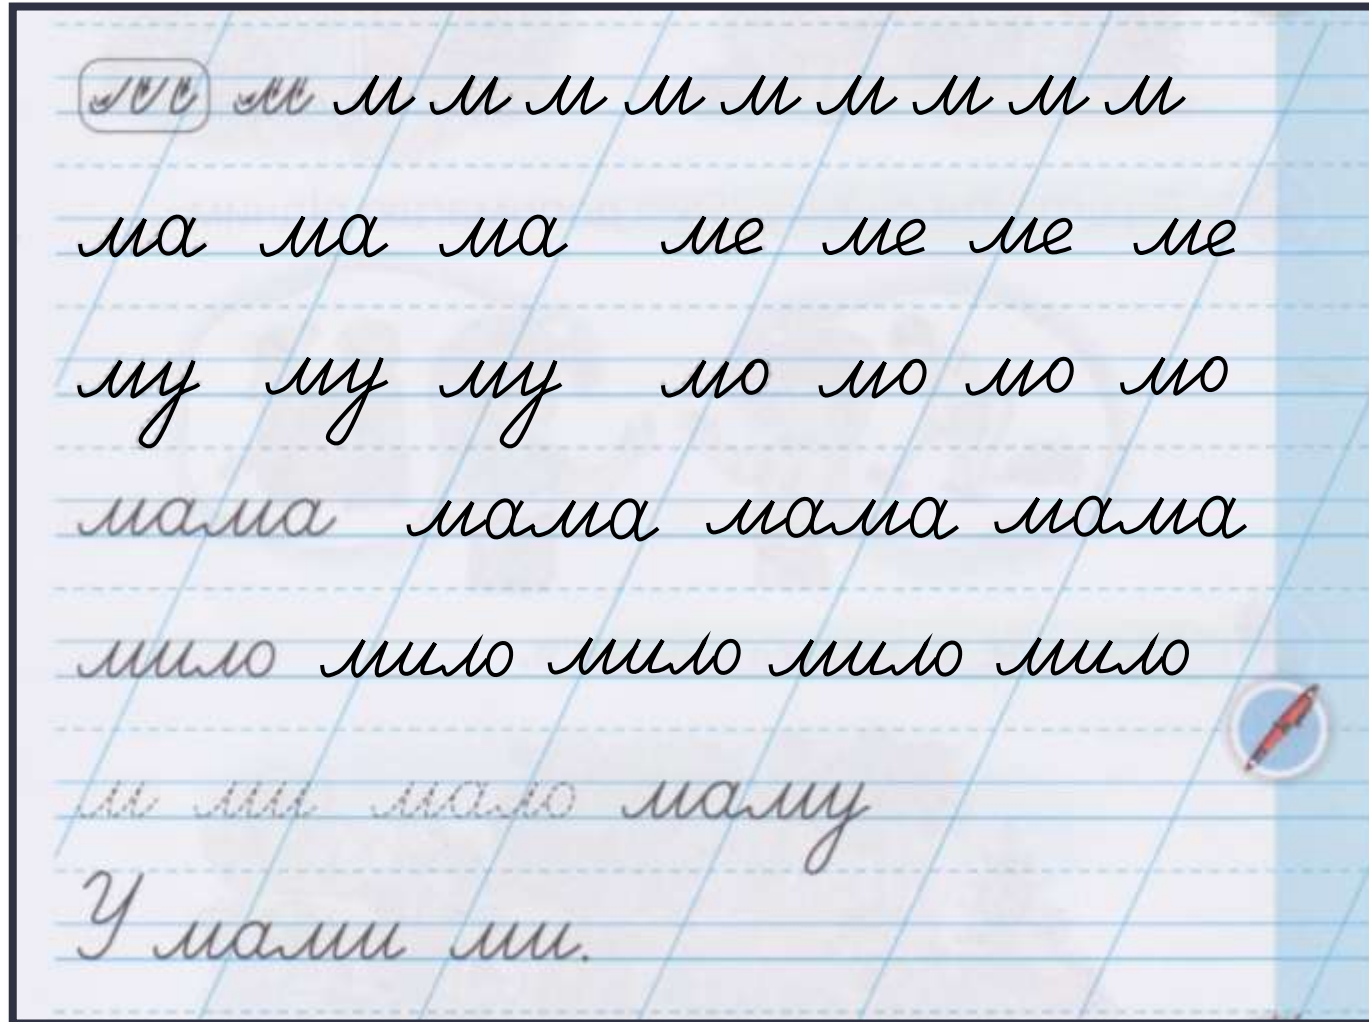 м м м м м м м м м м
ма ма ма ме ме ме ме
му му му мо мо мо мо
мама мама мама мама
мило мило мило мило мило
м ми мало маму
У мами ми.